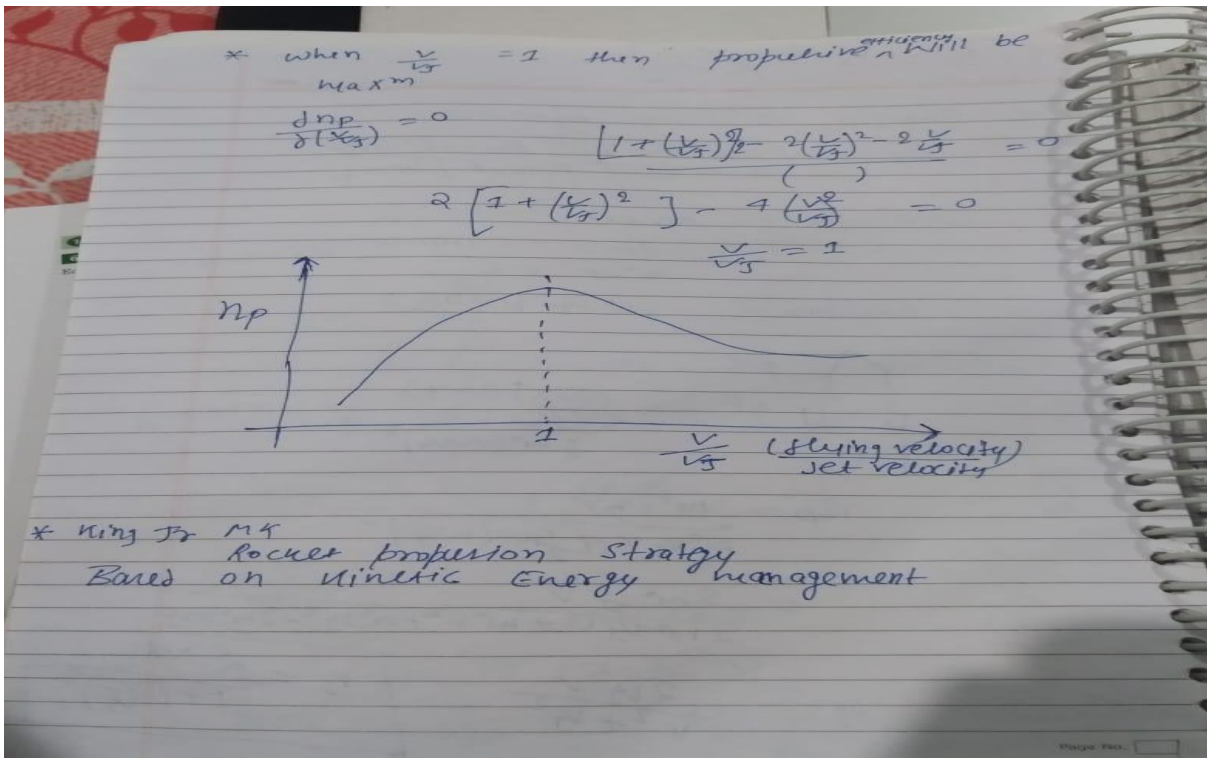 * when V/VJ = 1 then propulsive efficiency will be
maxm
dnp/d(V/VJ) = 0
[1 + (V/VJ)²]2 - 2(V/VJ)² - 2 V/VJ = 0
( )
2 [1 + (V/VJ)² ] - 4 (V²/VJ) = 0
V/VJ = 1
np
1
V/VJ (flying velocity)/Jet velocity
* King Jr MK
Rocket propusion Stratgy
Based on Kinetic Energy management
Page No.